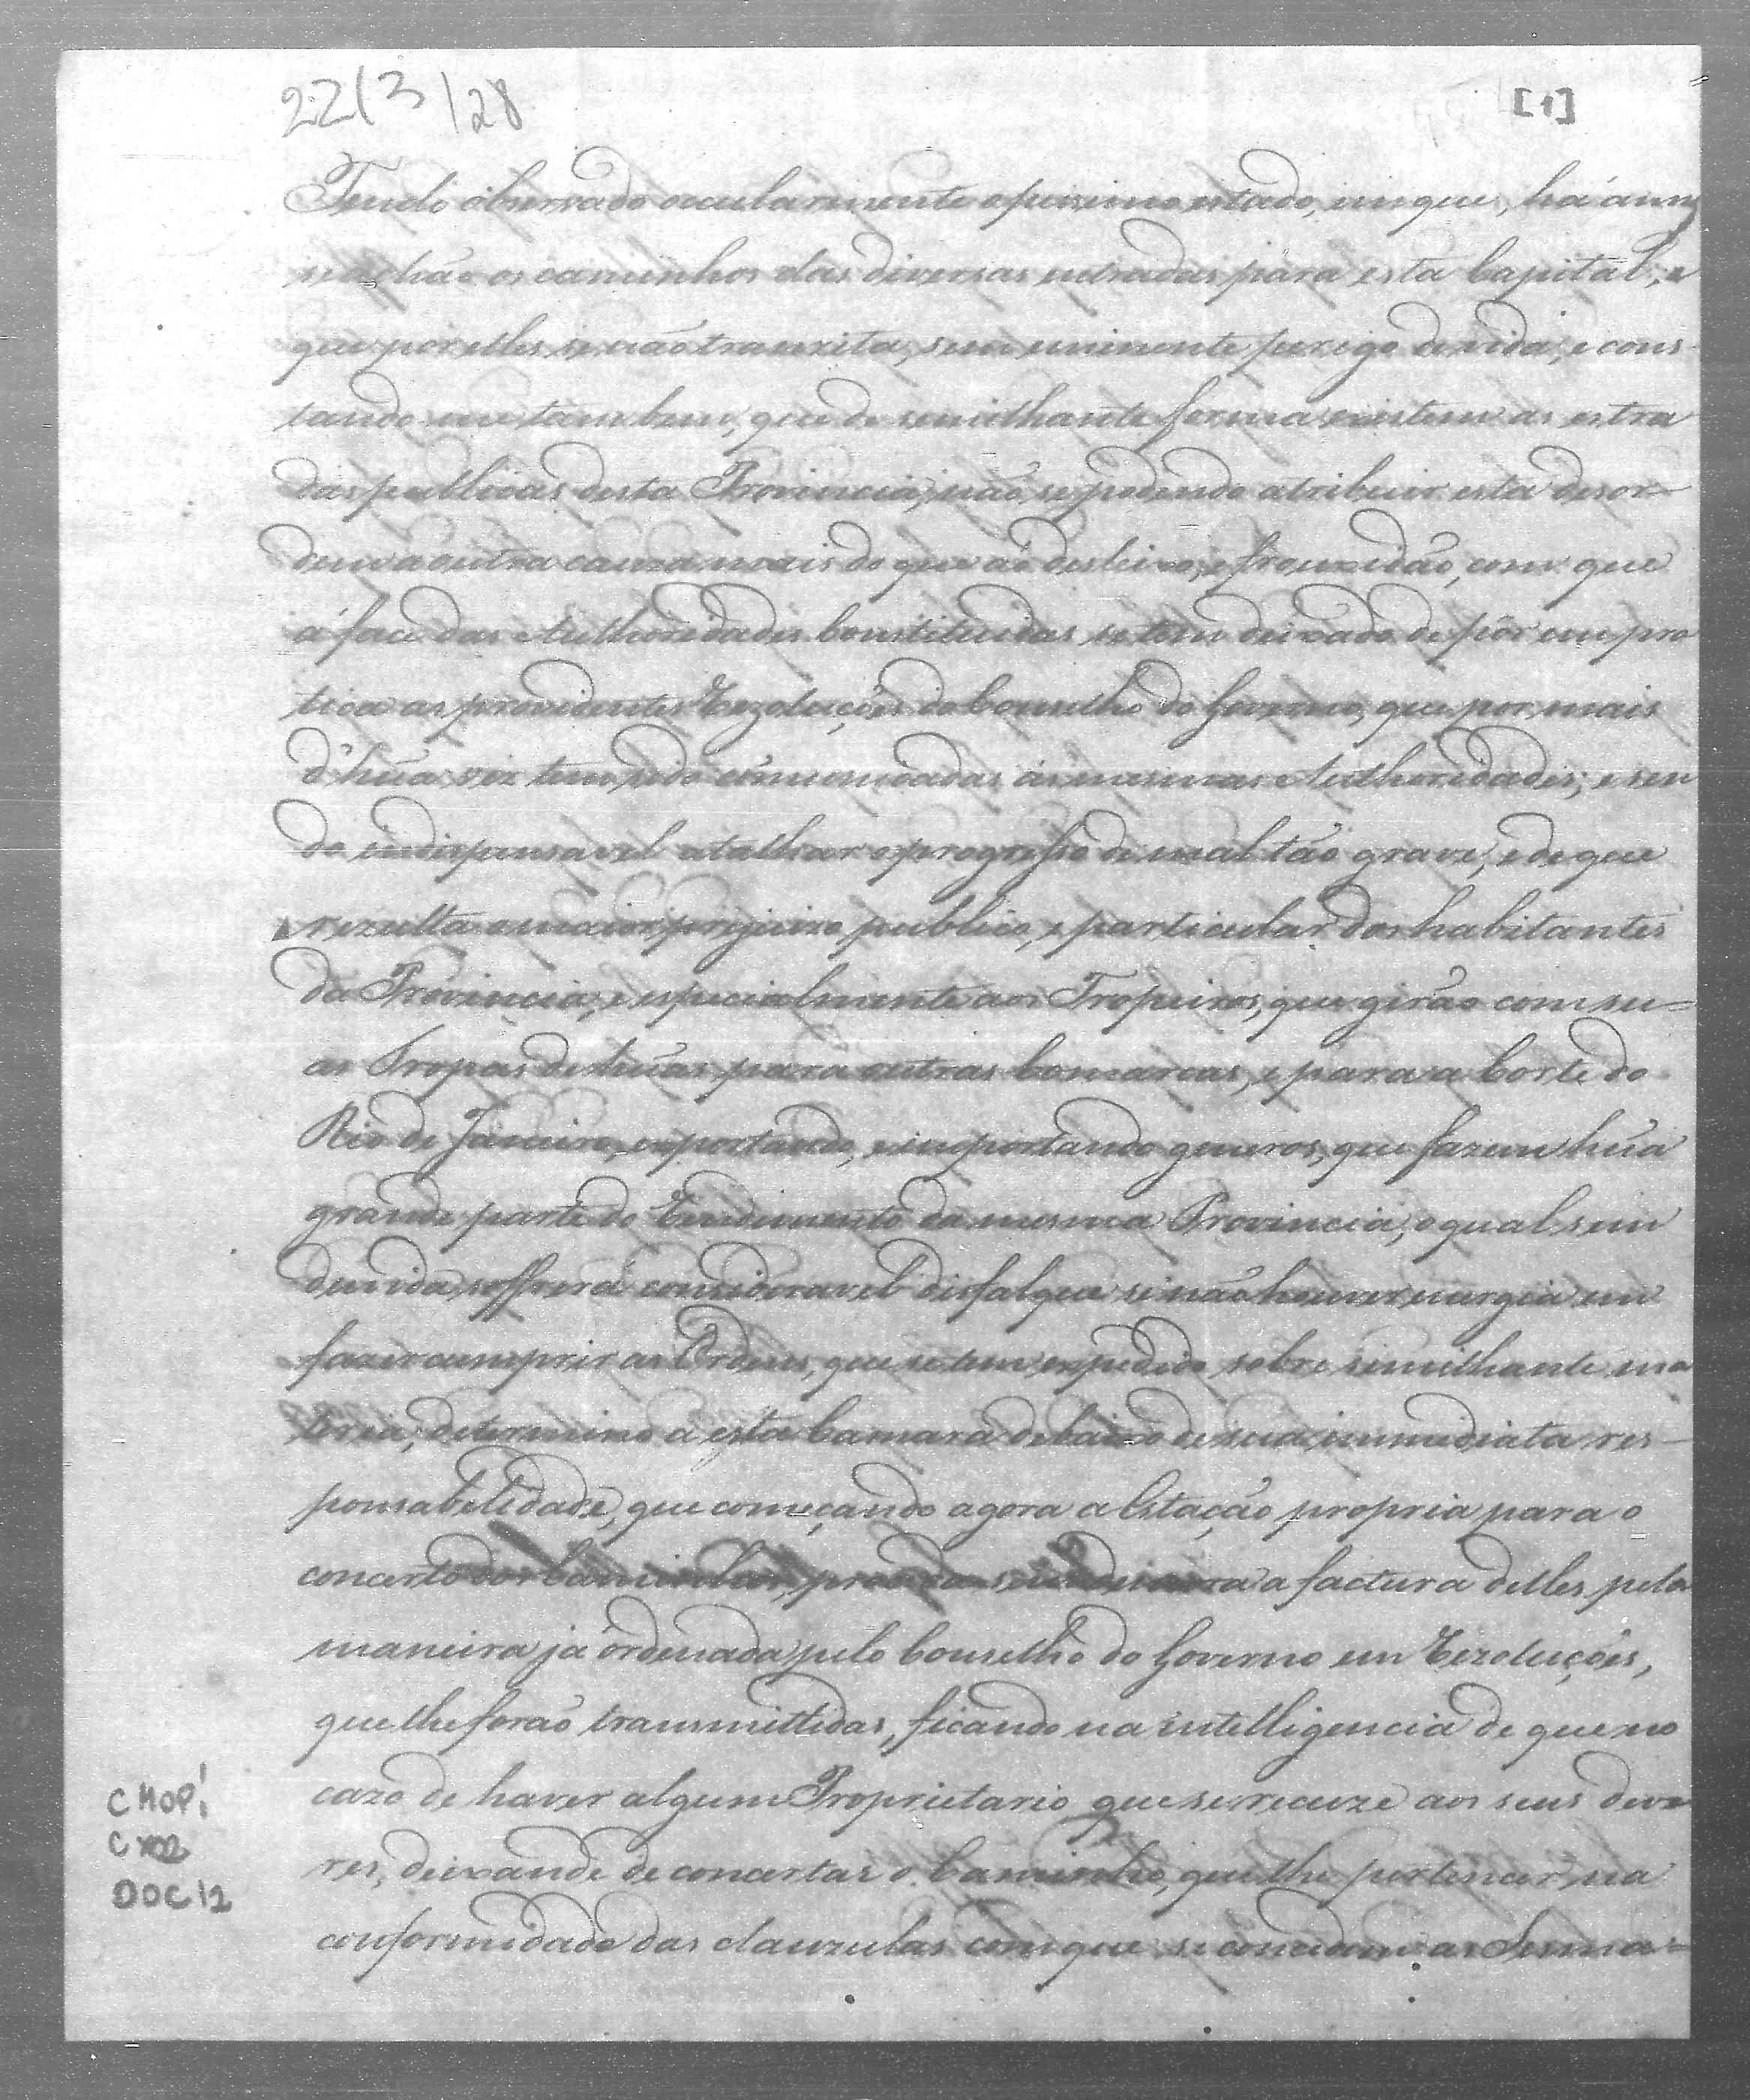 22/3/28
[1]
Tendo observado ocularmente o pessimo estado, em que, há annos
se achão os caminhos das diversas entradas para esta Capital, e
que por elles se não tranzita, sem eminente perigo de vida; e cons-
tando me tambem, que de similhante forma existem as estra
das publicas desta Provincia, não se podendo atribuir esta desor-
dem a outra cauza mais do que ao desleixo, e frouxidão, com que
á face das Authoridades Constituidas se tem deixado de pôr em pra
tica as providentes Rezoluções do Conselho do Governo, que por mais
d'hũa vez tem sido cômunicadas ás mesmas Authoridades; e sen
do indispensavel atalhar o progresso de mal tão grave, e de que
rezulta o maior prejuizo publico, e particular dos habitantes
da Provincia, e especialmente aos Tropeiros, que girão com su-
as Tropas de hũas para outras Comarcas, e para a Corte do
Rio de Janeiro, exportando, e importando generos, que fazem hũa
grande parte do Rendimento da mesma Provincia, o qual sem
duvida soffrerá consideravel disfalque se não houver energia em
fazer cumprir as Ordens, que se tem expedido sobre similhante ma
teria; determino a esta Camara debaixo de sua immediata res-
ponsabelidade, que começando agora a Estação propria para o
concerto dos Caminhos, a factura delles pela
maneira já ordenada pelo Conselho do Governo em Rezoluções,
que lhe forão transmittidas, ficando na intelligencia de que no
cazo de haver algum Proprietario que se recuze aos seus deve
res, deixando de concertar o Caminho, que lhe pertencer na
conformidade das clauzulas com que se concedem as Sesma-
CMOP!
CX02
DOC12